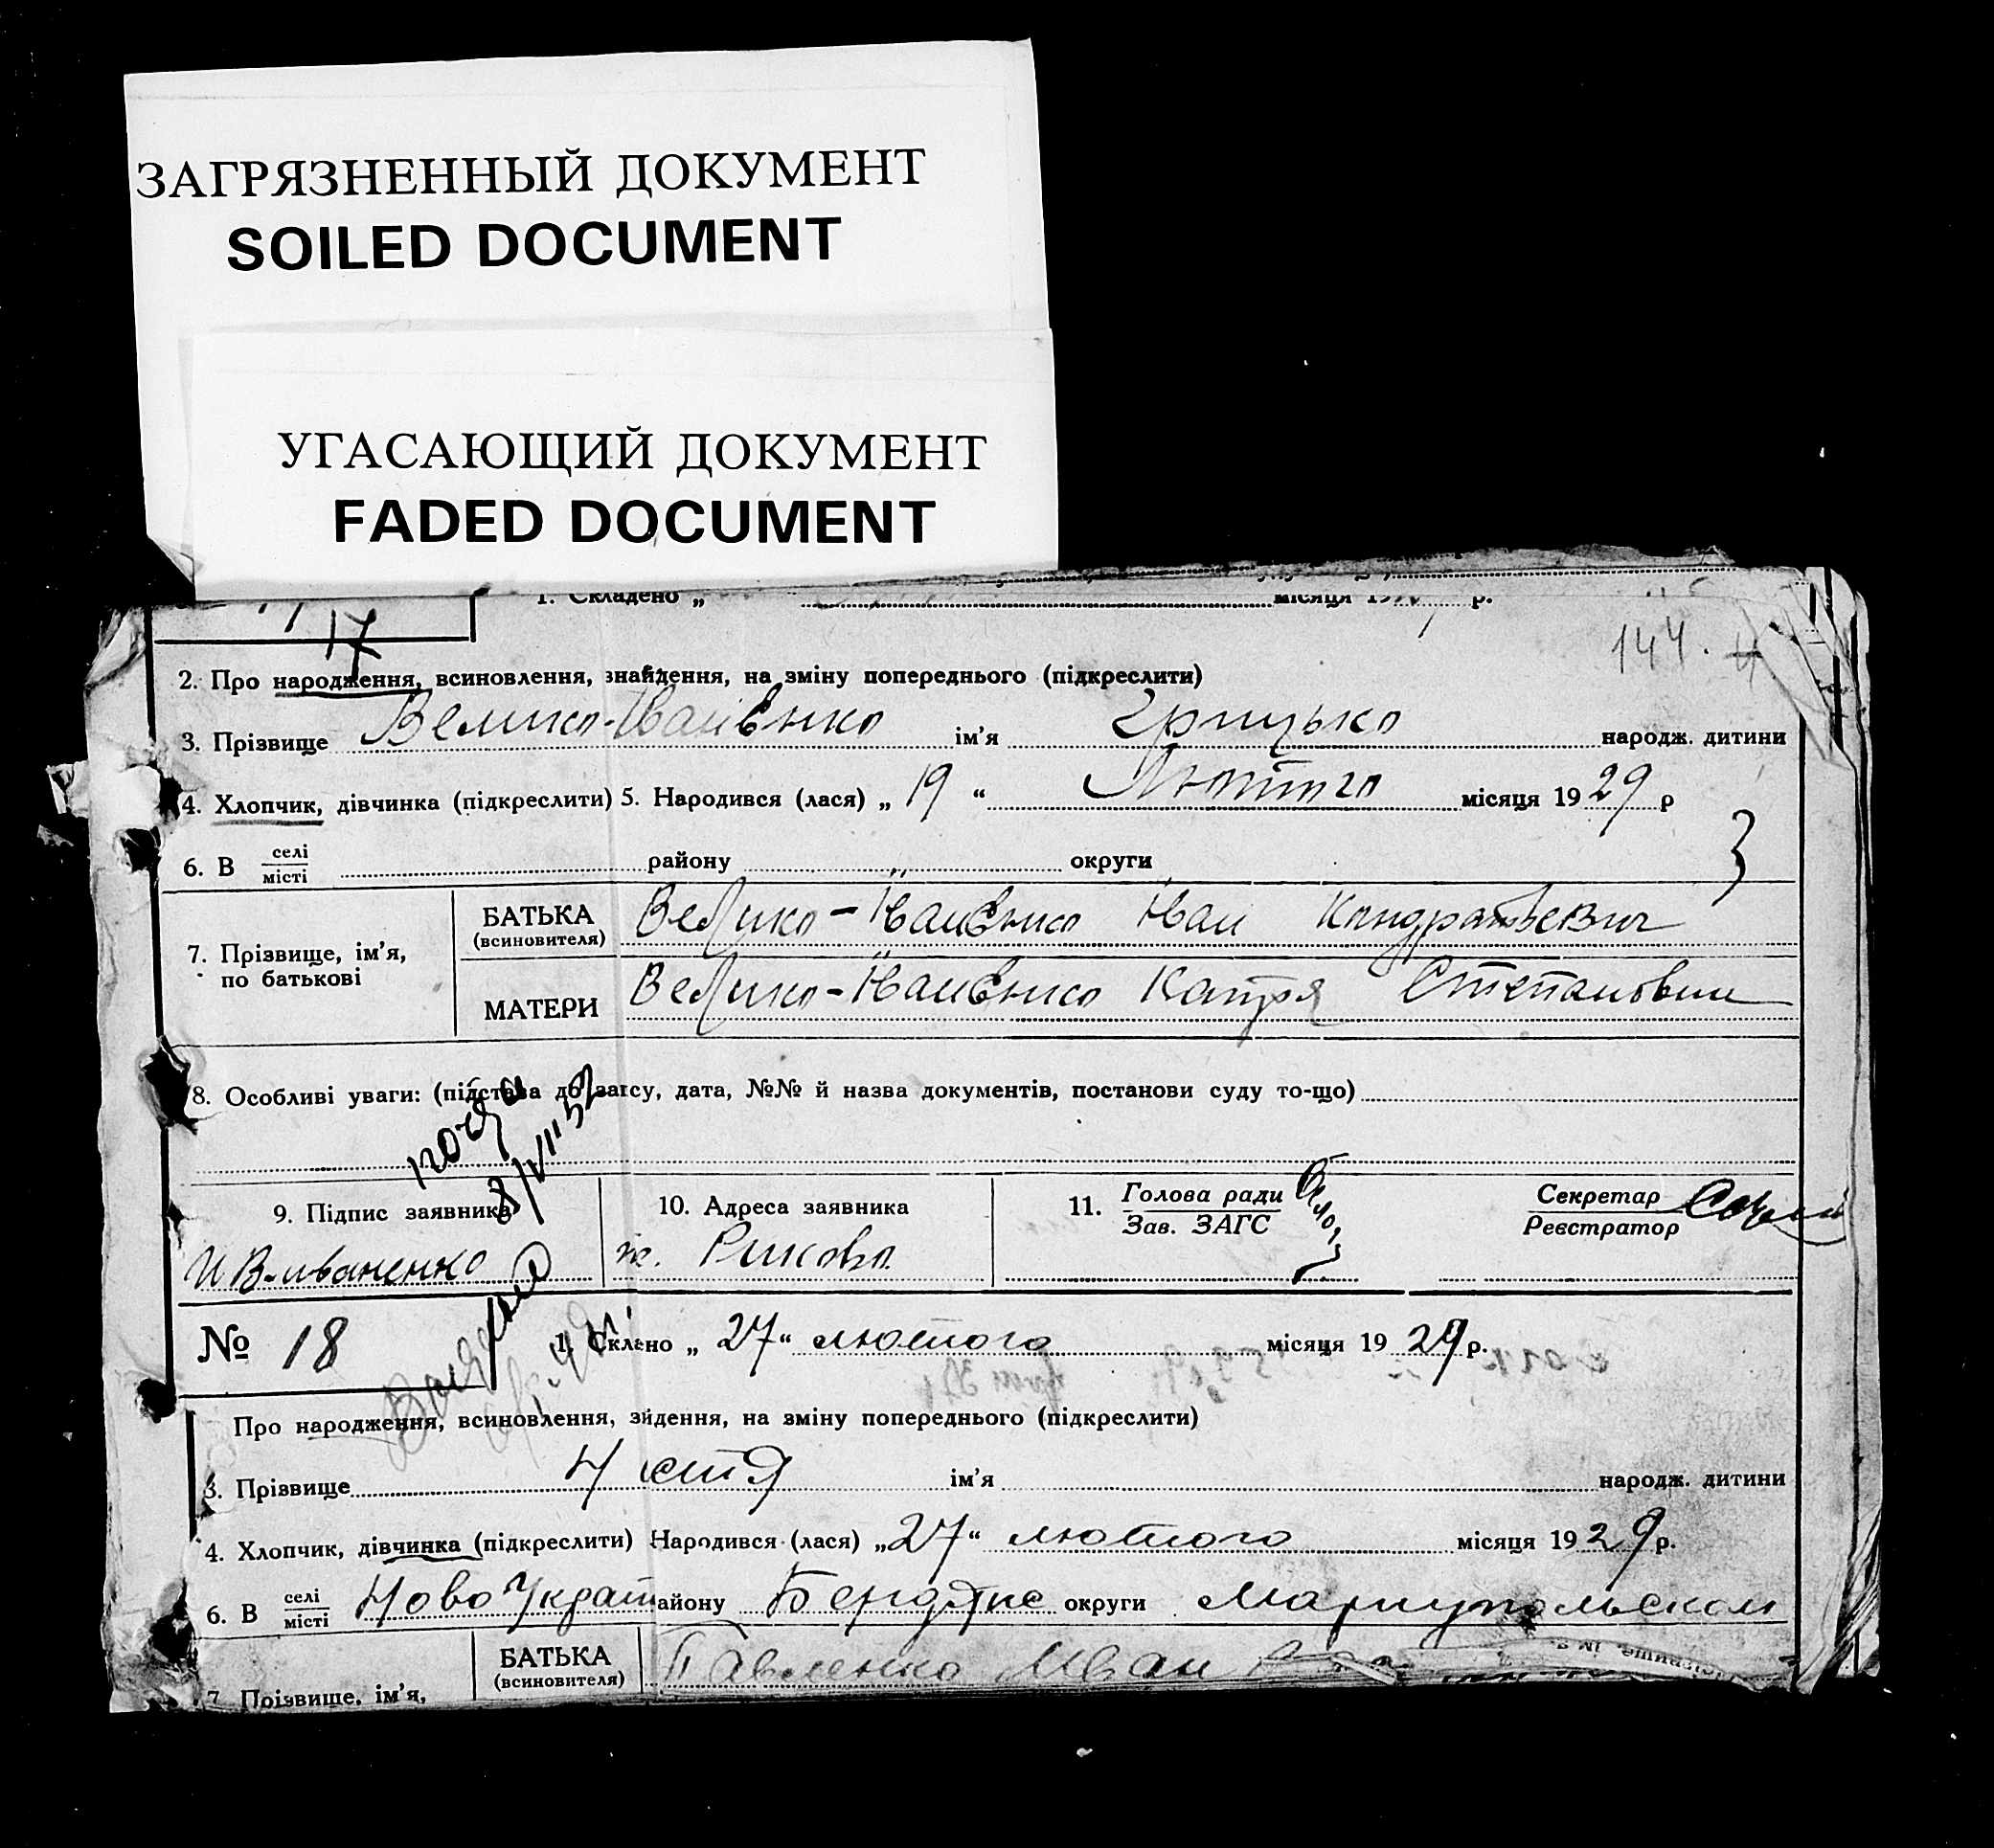 ЗАГРЯЗНЕННЫЙ ДОКУМЕНТ
SOILED DOCUMENT
УГАСАЮЩИЙ ДОКУМЕНТ
FADED DOCUMENT
1. Складено „ місяця 19 р.
17
144.
2. Про народження, всиновлення, знайдення, на зміну попереднього (підкреслити)
3. Прізвище Велико-Іванвнко ім'я Грицько народж. дитини
4. Хлопчик, дівчинка (підкреслити) 5. Народився (лася) „ 19 “ Лютого місяця 1929 р
6. В селі місті району округи
7. Прізвище, ім'я, по батькові
БАТЬКА (всиновителя) Велико- Иван Кондратьевич
МАТЕРИ Велико- Катря
8. Особливі уваги: (підстава до загсу, дата, №№ й назва документів, постанови суду то-що)
9. Підпис заявника 10. Адреса заявника 11. Голова ради Зав. ЗАГС Секретар Реєстратор
И В-иваненко х. Рикова
№ 18 1. Склено „ 27 “ лютого місяця 1929 р.
Про народження, всиновлення, зйдення, на зміну попереднього (підкреслити)
3. Прізвище ім'я народж. дитини
4. Хлопчик, дівчинка (підкреслити) Народився (лася) „ 27 “ лютого місяця 1929 р.
6. В селі місті Ново Украї айону округи Мариупольском
7. Прізвище, ім'я,
БАТЬКА (всиновителя) Павленко Иван